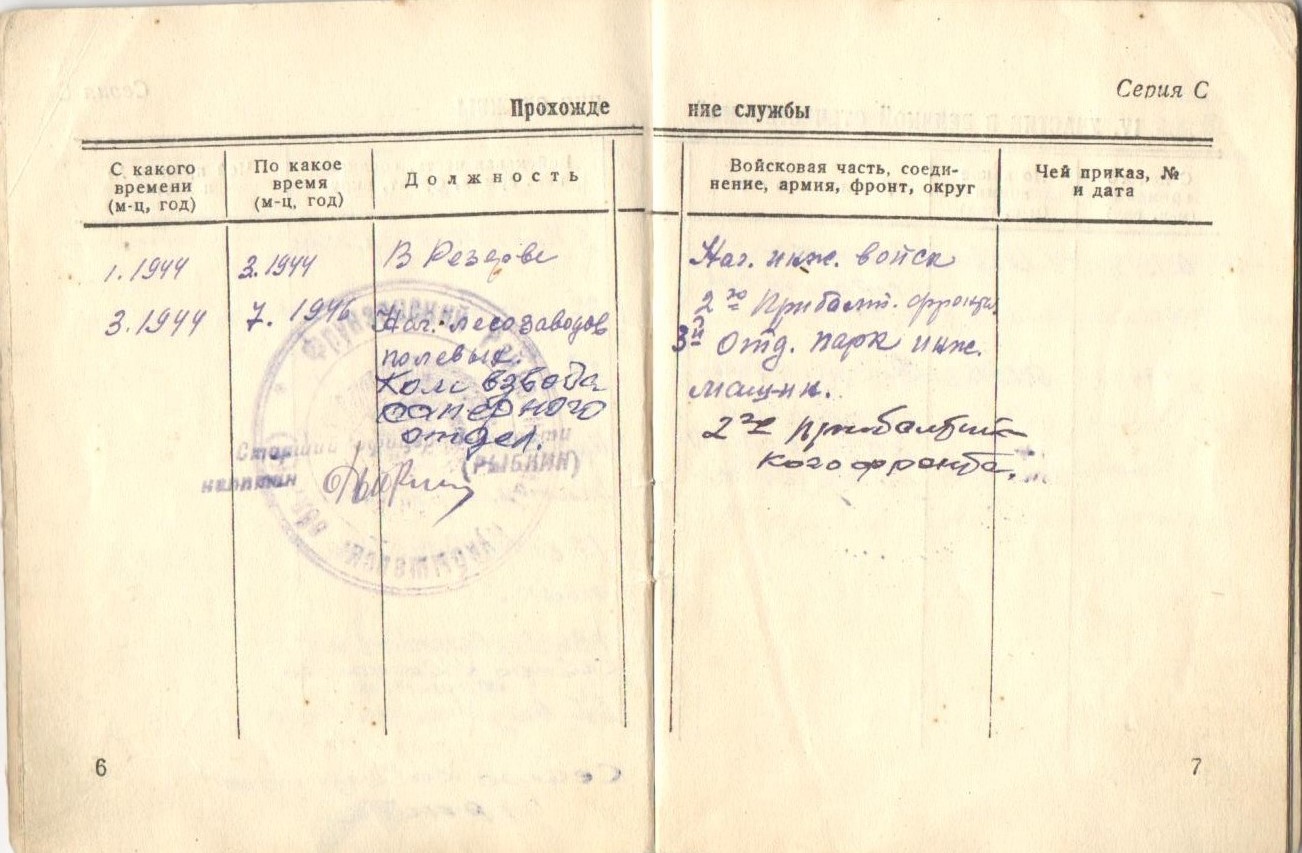 Серия С
Прохожде ние службы
С какого времени (м-ц, год)
По какое время (м-ц, год)
Должность
Войсковая часть, соеди-
нение, армия, фронт, округ
Чей приказ, №
и дата
1.1944 3.1944 В Резерве Нач. инж. войск
2го Прибалт. фронта
3.1944 7.1946 Нач. лесозаводов 3й Отд. парк инж.
полевых. машин.
Ком взвода
саперного 2го Прибалтий
отдел. кого фронта.
Старший
(РЫБКИН)
капитан
6
7